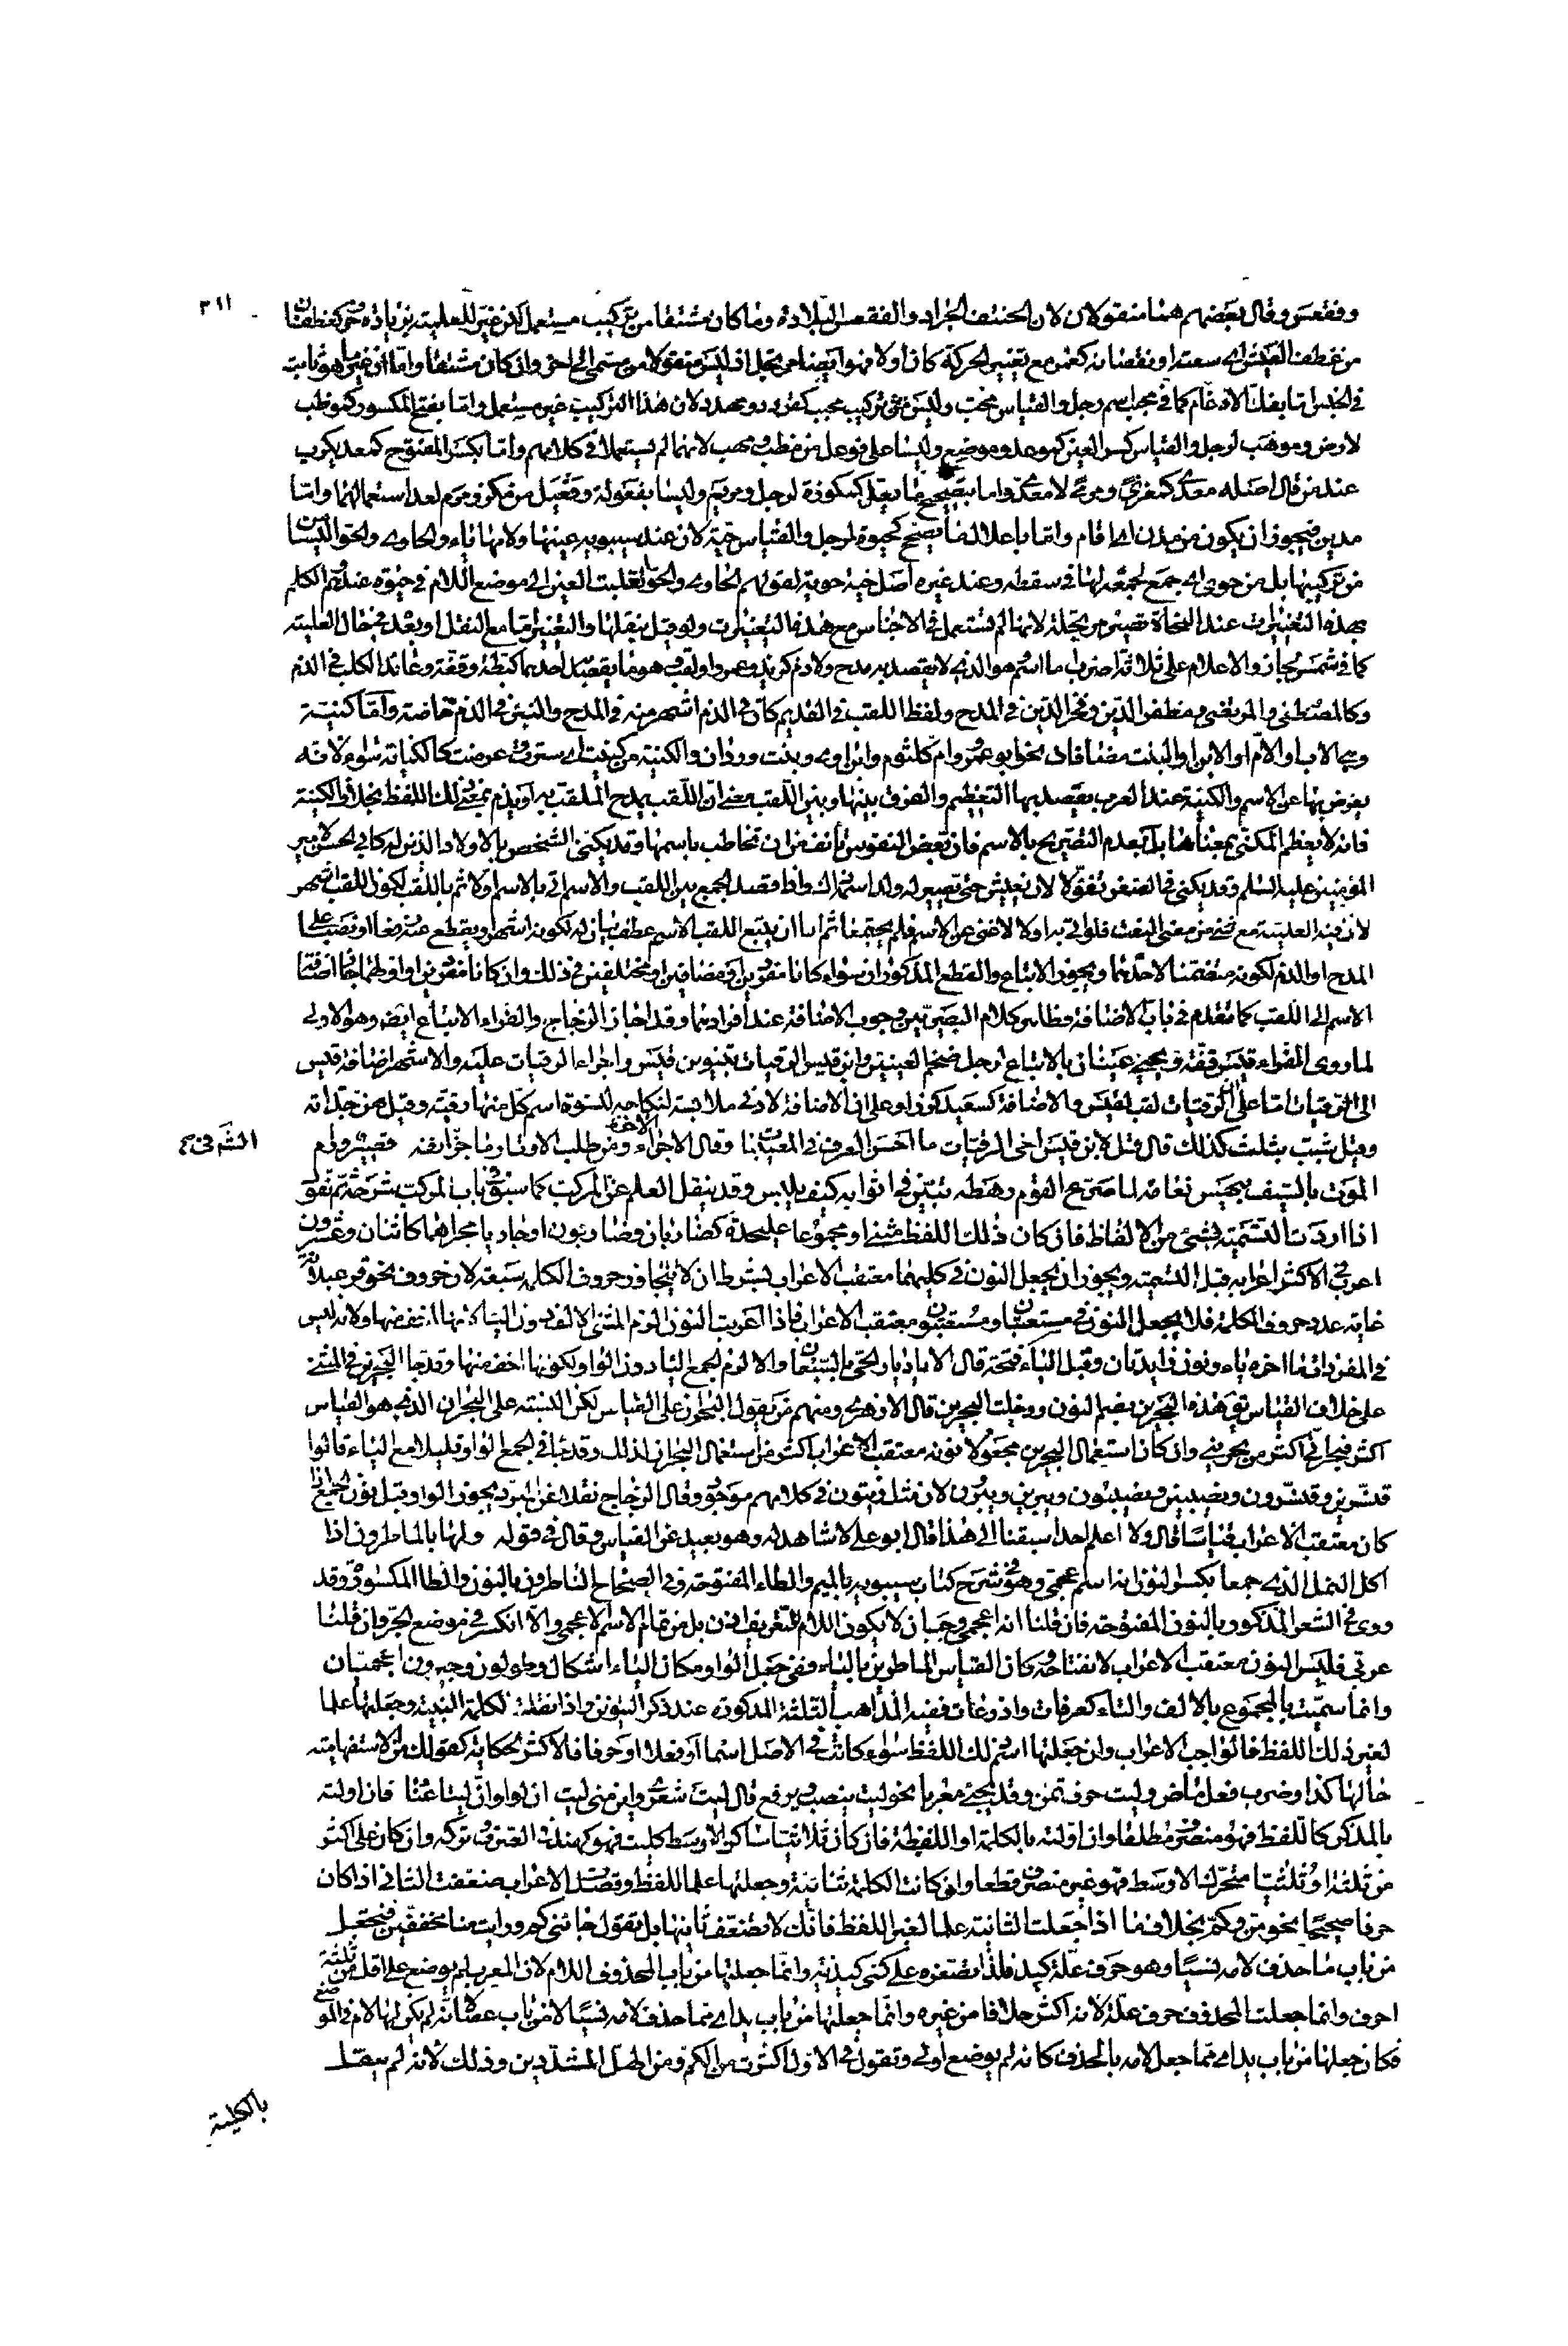 ٣١١
وفقعس وقال بعضهم هما منقولان لان الحنتف الجراد والفقعس البلادة وما كان مشتقا من تركيب مستعمل لكن غير للعلمية بزيادة كغطفان
من غطف العيش اى سعته او نقصانه كعمر مع تغيير الحركة كان او لا فهو ايضا مرتجل اذ ليس منقولا من مسمى الى اخر وان كان مشتقا واما ان غير ما هو ثابت
فى الجنس اما بفك الادغام كما فى محبب اسم رجل والقياس محب وليس من تركيب محب كقردد ومهدد لان هذا التركيب غير مستعمل واما بفتح المكسور كموظب
لارض وموهب لرجل والقياس كسر العين كموعد وموضع وليسا على فوعل من مظب ومهب لانهما لم يستعملا فى كلامهم واما بكسر المفتوح كمعديكرب
عند من قال اصله معدى كمغزى ومرمى لا معدو واما بتصحيح ما يعل كمكوزة لرجل ومريم وليسا بفعولة وفعيل من مكز ومرم لعدم استعمالهما واما
مدين فيجوز ان يكون من مدن اى اقام واما باعلال ما يصح كحيوة لرجل والقياس حية لان عند سيبويه عينها ولامها ياء والحاوى والحواء ليسا
من تركيبها بل من حوى اى جمع لجمعه لها فى سفطه وعند غيره اصل حية حوية لقولهم الحاوى والحواء نقلبت العين الى موضع اللام فى حيوة عندهم الكلم
بهذه التغييرات عند النحاة تصير مرتجلة لانها لم تستعمل فى الاجناس مع هذه التغييرات ولو قيل بنقلها والتغيير اما مع النقل او بعده فى حال العلمية
كما فى شمس لجاز والاعلام على ثلاثة اضرب اما اسم هو الذى لا يقصد به مدح ولا ذم كزيد وعمرو او لقب وهو ما يقصد به احدهما كبطة وقفة وعائذ الكلب فى الذم
وكالمصطفى والمرتضى ومظفر الدين وفخر الدين فى المدح ولفظ اللقب فى القديم كان فى الذم اشهر منه فى المدح والنبز فى الذم خاصة واما كنية
وهى الاب او الام او الابن او البنت مضافات نحو ابو عمرو وام كلثوم وابن اوى وبنت وردان والكنية من كنيت اى سترت وعرضت كالكناية سواء لانه
يعرض بها عن الاسم والكنية عند العرب يقصد بها التعظيم والفرق بينها وبين اللقب معنى ان اللقب يمدح الملقب به او يذم بمعنى ذلك اللفظ بخلاف الكنية
فانه لا يعظم المكنى بمعناها بل بعدم التصريح بالاسم فان بعض النفوس تأنف من ان تخاطب باسمها وقد يكنى الشخص بالاولاد الذين له كابى الحسن لامير
المؤمنين عليه السلم وقد يكنى فى الصغر تفؤلا لان يعيش حتى يصير له ولد اسمه ذاك واذا قصد الجمع بين اللقب والاسم اتى بالاسم اولا ثم باللقب لكون اللقب اشهر
لان فيه العلمية مع شئ من معنى النعت فلو اتى به اولا لاغنى عن الاسم فلم يجتمعا ثم اما ان يتبع اللقب الاسم عطف بيان له لكونه اشهر او يقطع عنه رفعا او نصبا على
المدح او الذم لكونه متضمنا لاحدهما ويجوز الاتباع والقطع المذكوران سواء كانا مفردين او مضافين او مختلفين فى ذلك وان كانا مفردين او اولهما جاز اضافة
الاسم الى اللقب كما تقدم فى باب الاضافة وظاهر كلام البصريين وجوب الاضافة عند افرادهما وقد اجاز الزجاج والفراء الاتباع ايضا وهو الاولى
لما روى الفراء قيس قفة ويحيى عينان بالاتباع لرجل ضخم العينين وابن قيس الرقيات بتنوين قيس واجراء الرقيات عليه والاشهر اضافة قيس
الى الرقيات اما على ان الرقيات لقب لقيس والاضافة كسعيد كرز او على ان الاضافة لادنى ملابسة لنكاحه لنسوة اسم كل منها رقية وقيل هن جداته
وقيل شبب بثلث كذلك قال قل لابن قيس اخى الرقيات ما احسن العرف فى المصيبات وقال الاخر ومن طلب الاوتار ما حز انفه قصير ورام
الموت بالسيف بيهس نعامة لما صرع القوم رهطه تبين فى اثوابه كيف يلبس وقد ينقل العلم عن المركب كما سبق فى باب المركب شرحه ثم نقول
اذا اردت التسمية بشئ من الالفاظ فان كان ذلك اللفظ مثنى او مجموعا على حده كضاربان وضاربون او جاريا مجراهما كاثنان وعشرون
اعرب فى الاكثر اعرابه قبل التسمية ويجوز ان يجعل النون فى كليهما معتقب الاعراب بشرط ان لا يتجاوز حروف الكلمة سبعة لان حروف نحو قرعبلانة
غاية عدد حروف الكلمة فلا يجعل النون فى مستعتبان ومستعتبون معتقب الاعراب فاذا اعربت النون الزم المثنى الالف دون الياء لانها اخف منها ولانه ليس
فى المفردات ما اخره ياء ونون زايدتان وقبل الياء فتحة قال الا يا ديار الحى بالسبعان والزم الجمع الياء دون الواو لكونها اخف منها وقد جاء البحرين فى المثنى
على خلاف القياس تقول هذه البحرين بضم النون ودخلت البحرين قال الازهرى ومنهم من يقول البحران على القياس لكن النسبة على البحران الذى هو القياس
اكثر فبحرانى اكثر من بحرينى وان كان استعمال البحرين مجعولا نونه معتقب الاعراب اكثر من استعمال البحران كذلك وقد جاء فى الجمع الواو قليلا مع الياء قالوا
قنسرين وقنسرون ونصيبين ونصيبون ويبرين ويبرون لان مثل زيتون فى كلامهم موجود وقال الزجاج نقلا عن المبرد يجوز الواو قبل نون الجمع اذا
كان معتقب الاعراب قياسا قال ولا اعلم احدا سبقنا الى هذا قال ابو على لا شاهد له وهو بعيد عن القياس وقال فى قوله ولها بالماطرون اذا
اكل النمل الذى جمعا بكسر النون انه اسم عجمى وهو فى شرح كتاب سيبويه بالميم والطاء المفتوحة وفى الصحاح الناطرون بالنون والطاء المكسورة وقد
روى فى الشعر المذكور بالنون المفتوحة فان قلنا انه اعجمى وجب ان لا يكون اللام للتعريف اذن بل من تمام الاسم الاعجمى والا انكسر فى موضع الجر وان قلنا
عربى فليس النون معتقب الاعراب لانفتاحه وكان القياس الماطرين بالياء ففى جعل الواو مكان الياء اشكال وطولون وجيرون اعجميان
وانما سميت بالمجموع بالالف والتاء كعرفات واذرعات ففيه المذاهب الثلثة المذكورة عند ذكر التنوين واذا نقلت الكلمة المبنية وجعلتها علما
لغير ذلك اللفظ فالواجب الاعراب وان جعلتها اسم ذلك اللفظ سواء كانت فى الاصل اسما او فعلا او حرفا فالاكثر الحكاية كقولك من الاستفهامية
حالها كذا وضرب فعل ماض وليت حرف تمن وقد يجئ معربا نحو ليت ينصب ويرفع قال ليت شعرى واين منى ليت ان لوا وان ليتا عناء فان اولته
بالمذكر كاللفظ فهو منصرف مطلقا وان اولته بالكلمة او اللفظة فان كان ثلاثيا ساكن الاوسط كليت فهو كهند فى الصرف وتركه وان كان على اكثر
من ثلثة او ثلثيا متحرك الاوسط فهو غير منصرف قطعا وان كانت الكلمة ثنائية وجعلتها علما للفظ وقصدت الاعراب ضعفت الثانى اذا كان
حرفا صحيحا نحو من وكم بخلاف ما اذا جعلت الثنائية علما لغير اللفظ فانك لا تضعف ثانيها بل تقول جائنى كم ورايت منا مخففين فتجعل
من باب ما حذف لامه نسيا وهو حرف علة كيد فلذا تصغره على كمى كيدية وانما جعلتها من باب المحذوف اللام لان المعرب لم يوضع على اقل من ثلثة
احرف وانما جعلت المحذوف حرف علة لانه اكثر حذفا من غيره وانما جعلتها من باب يد اى مما حذف لامه نسيا لا من باب عصا لانه لم يكن لها لام فى الوضع
فكان جعلها من باب يد اى مما جعل لامه بالحذف كانه لم يوضع اولى وتقول فى الاول اكثرت من الكم ومن الهل المشددين وذلك لانه لم ينقل
بالكلية